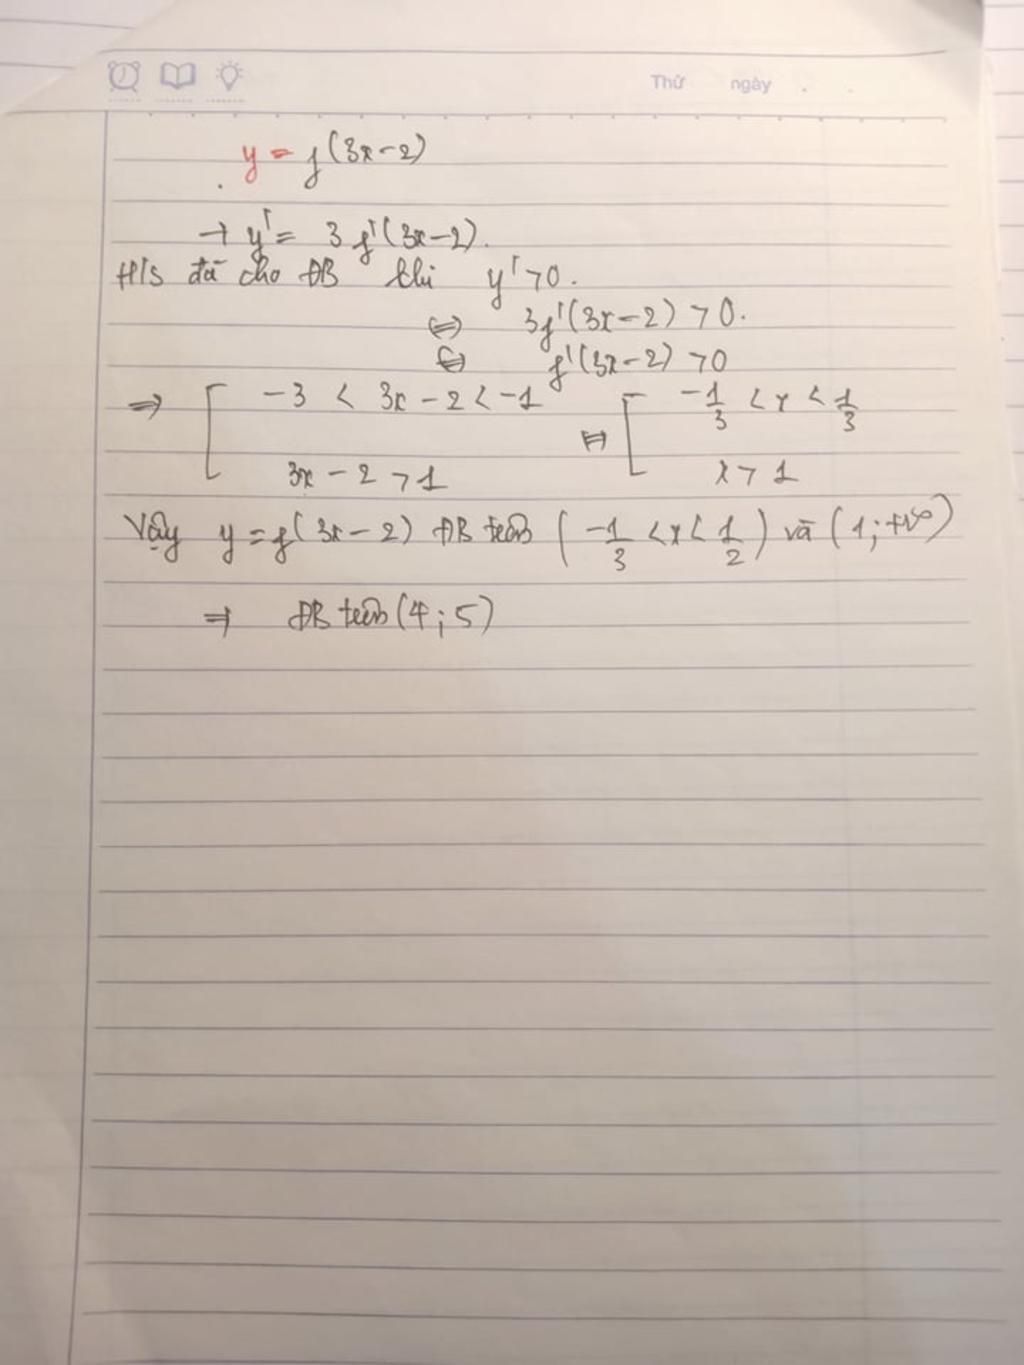 Thứ ngày
y = f(3x-2)
→ y' = 3f'(3x-2).
H/S đã cho ĐB khi y' > 0.
⇔ 3f'(3x-2) > 0.
⇔ f'(3x-2) > 0
⇒ [ -3 < 3x - 2 < -1 ⇔ [ -1/3 < x < 1/3
3x - 2 > 1 x > 1
Vậy y = f(3x-2) ĐB trên (-1/3 < x < 1/2) và (1; +∞)
⇒ ĐB trên (4; 5)